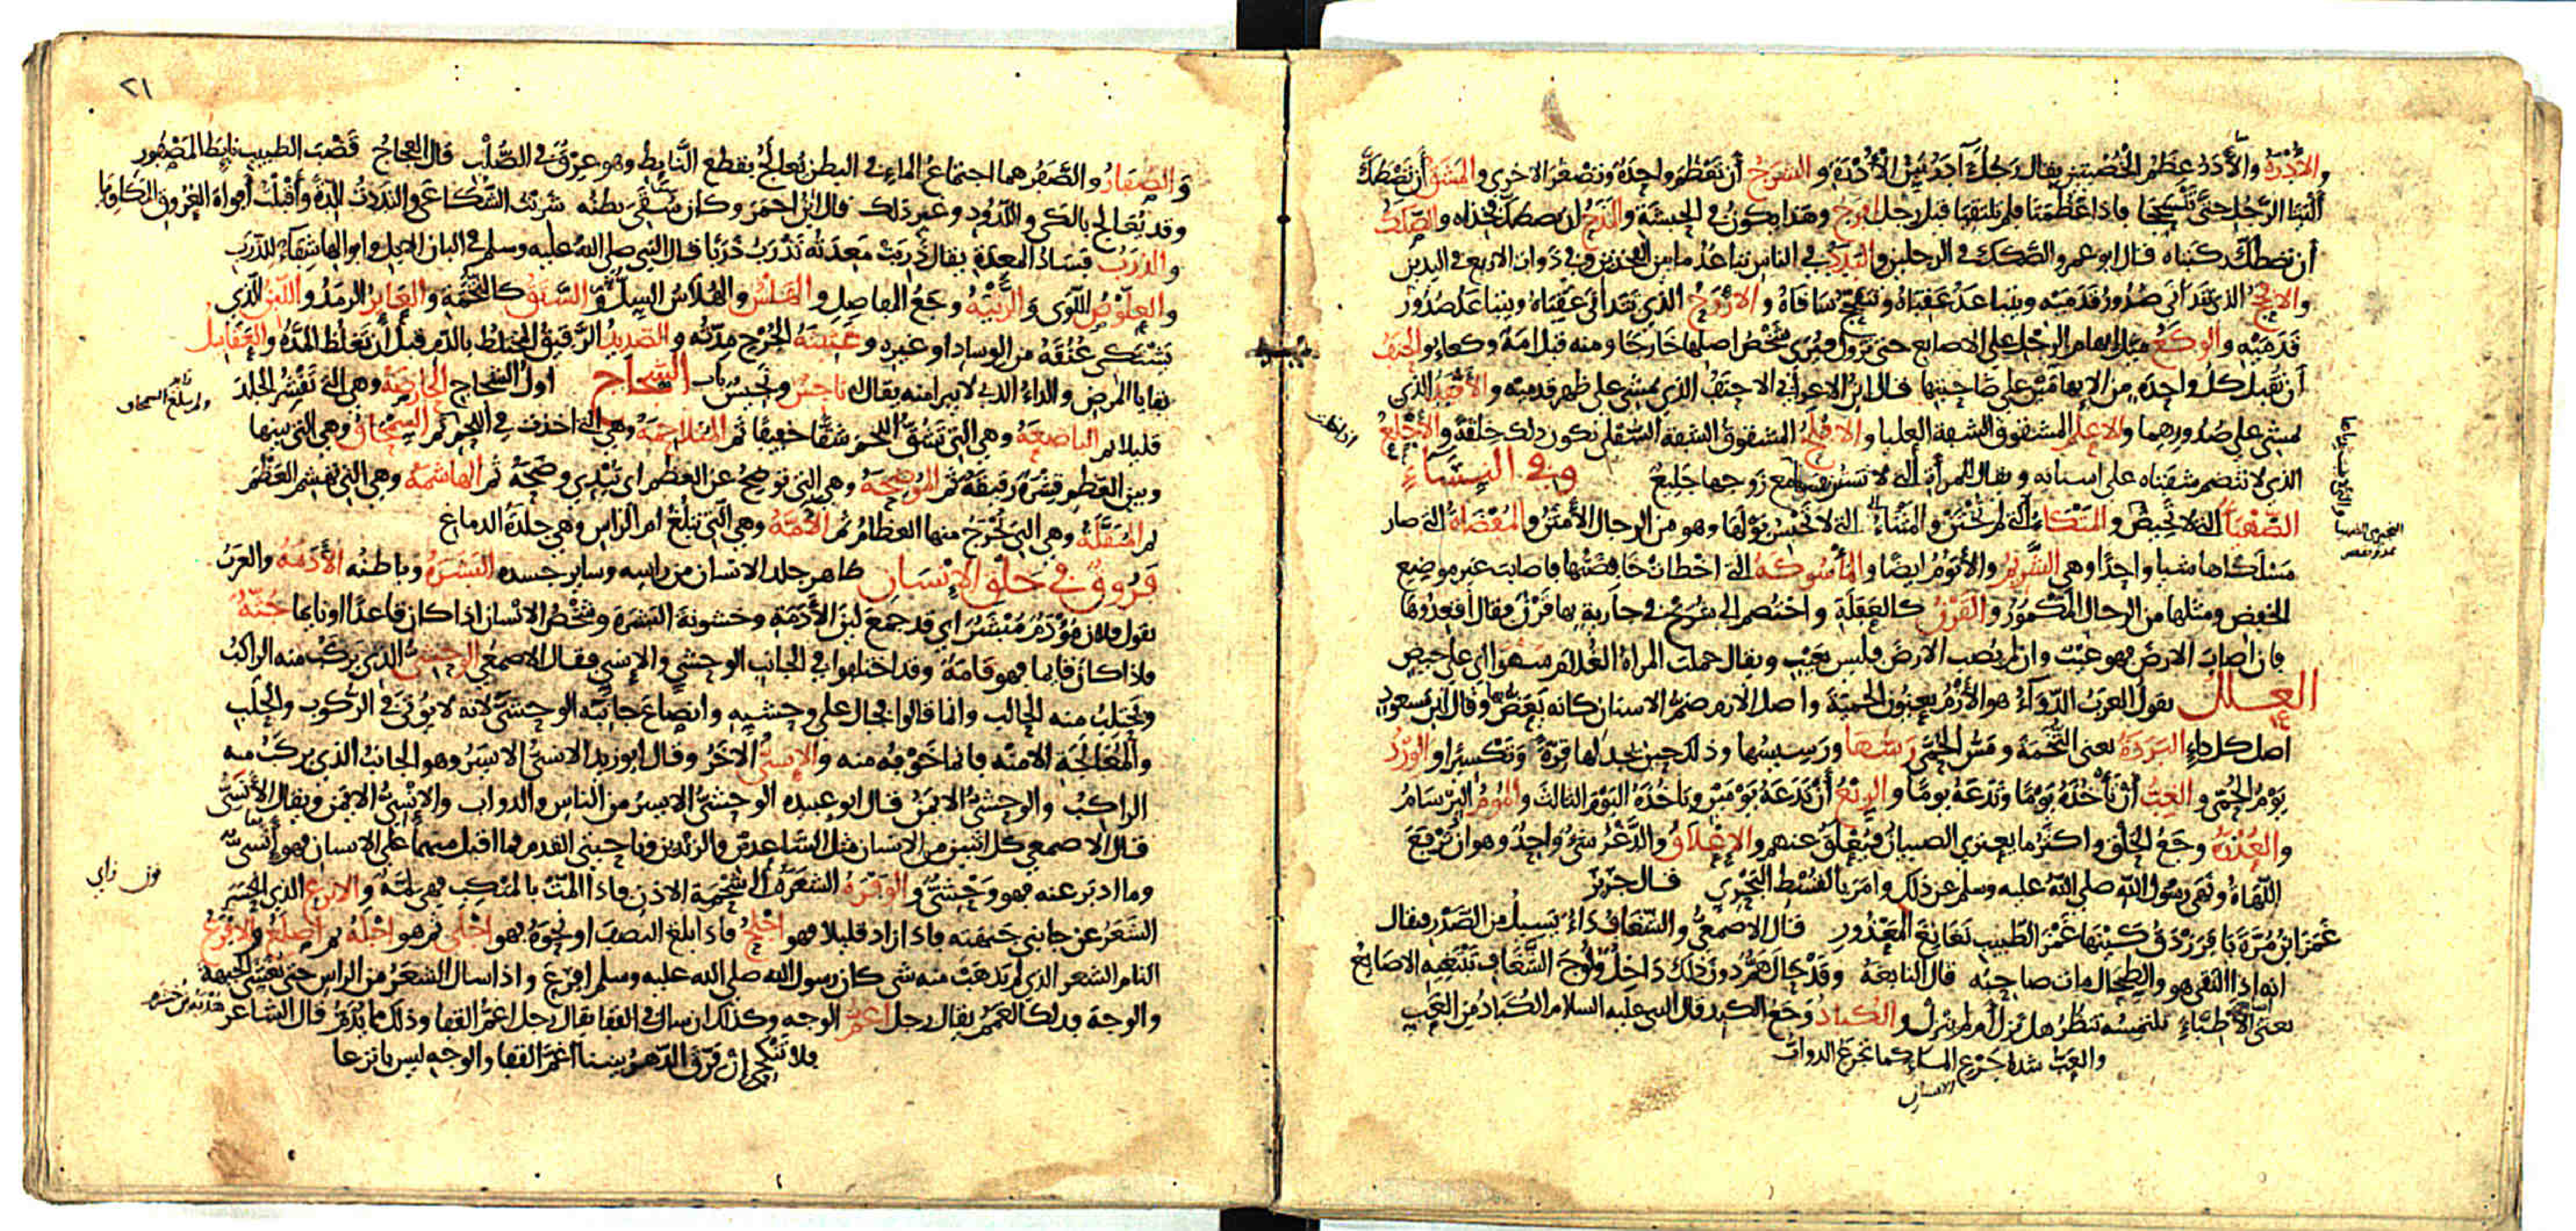 والأُدرة والأَدَر عظم الخصيتين يقال رجل آدر بيّن الأُدرة والشرج أن تعظم واحدة وتصغر الاخرى والمشق أن تصطك
أليتا الرجل حتى تنسحجا فاذا عظمتا فلم تلتقيا قيل رجل افرج وهذا يكون في الحبشة والمذح ان يصطك فخذاه والصكك
أن تصطك ركبتاه قال ابو عمرو الصكك في الرجلين والبدد في الناس تباعد ما بين الفخذين وفي ذوات الاربع في اليدين
والافحج الذي تتدانى صدور قدميه ويتباعد عقباه وتتفحج ساقاه والاروح الذي تتدانى عقباه ويتباعد صدور
قدميه والوكع ميل ابهام الرجل على الاصابع حتى تزول فيرى شخص اصلها خارجا ومنه قيل امة وكعاء والحنف
أن تقبل كل واحدة من الابهامين على صاحبتها قال ابن الاعرابي الاحنف الذي يمشي على ظهر قدميه والاقفد الذي
يمشي على صدورهما والاعلم المشقوق الشفة العليا والافلح المشقوق الشفة السفلى تكون ذلك خلقة والأجلع
الذي لا تنضم شفتاه على اسنانه ويقال للمرأة التي لا تستر نفسها مع زوجها جليع وفي النساء
الضهياء التي لا تحيض والمتكاء التي لم تختن والمثناء التي لا تحبس بولها وهو من الرجال الأمثن والمفضاة التي صار
مسلكاها شيا واحدا وهي الشريم والأتوم ايضا والمأسوكة التي اخطأت خافضتها فاصابت غير موضع
الخفض ومثلها من الرجال المكمور والقرن كالعفلة واختصم الى شريح في جارية بها قرن فقال اقعدوها
فان اصاب الارض فهو عيب وان لم يصب الارض فليس بعيب ويقال حملت المراة الغلام سهوا اي على حيض
العلل تقول العرب الدواء هو الأزم يعنون الحمية واصل الازم ضم الاسنان كانه يعض بها وقال ابن مسعود
اصل كل داء البردة يعني التخمة ومس الحمى رسها ورسيسها وذلك حين تجد لها فترة وتكسيرا والورد
يوم الحمى والغب أن تأخذه يوما وتدعه يوما والربع أن تدعه يومين وتاخذه اليوم الثالث والموم البرسام
والعذرة وجع الحلق واكثر ما يعتري الصبيان فيعلق عنهم والإعلاق والدغر شيء واحد وهو ان ترفع
اللهاة ونهى رسول الله صلى الله عليه وسلم عن ذلك وامر بالقسط البحري قال جرير
غمز ابن مرة يا فرزدق كينها غمز الطبيب نغانغ المعذور قال الاصمعي والشغاف داء يسيل من الصدر فيقال
انه اذا التقى هو والطحال مات صاحبه قال النابغة وقد حال هم دون ذلك داخل ولوج الشغاف تبتغيه الاصابع
يعني الأطباء تلتمسه تنظر هل نزل أم لم ينزل والكباد وجع الكبد قال النبي عليه السلام الكباد من العب
والعب شدة جرع الماء كما تجرع الدواب
٢١
والصفار والصفر هما اجتماع الماء في البطن يعالج بقطع النايط وهو عرق في الصلب قال العجاج قضب الطبيب نايط المصفور
وقد يعالج بالكي واللدود وغير ذلك قال ابن احمر وكان سقي بطنه شربت الشكاعى والتددت الدة وأقبلت أفواه العروق المكاويا
والذرب فساد المعدة يقال ذربت معدته تذرب ذربا قال النبي صلى الله عليه وسلم في البان الابل وابوالها شفاء للذرب
والعلوص اللوى والرثية وجع المفاصل والهلس والهلاس السل والسنق كالتخمة والعاير الرمد واللبن الذي
يشتكي عنقه من الوساد او غيره وغثيثة الجرح مدته والصديد الرقيق المختلط بالدم قبل أن تغلظ المدة والعقابيل
بقايا المرض والداء الذي لا يبرا منه يقال له ناجس ونجيس باب الشجاج اول الشجاج الحارصة وهي التي تقشر الجلد
قليلا ثم الباضعة وهي التي تشق اللحم شقا خفيفا ثم المتلاحمة وهي التي اخذت في اللحم ثم السمحاق وهي التي بينها
وبين العظم قشرة رقيقة ثم الموضحة وهي التي توضح عن العظم اي تبدي وضحه ثم الهاشمة وهي التي تهشم العظم
ثم المنقلة وهي التي تخرج منها العظام ثم الآمة وهي التي تبلغ ام الراس وهي جلدة الدماغ
فروق في خلق الإنسان ظاهر جلد الانسان من راسه وساير جسده البشرة وباطنه الأدمة والعرب
تقول فلان مؤدم مبشر اي قد جمع لين الأدمة وخشونة البشرة وشخص الانسان اذا كان قاعدا او نايما جثة
فاذا كان قايما فهو قامة وقد اختلفوا في الجانب الوحشي والإنسي فقال الاصمعي الوحشي الذي يركب منه الراكب
ويحتلب منه الحالب وانما قالوا فجال على وحشيه وانصاع جانبه الوحشي لانه لا يؤتى في الركوب والحلب
والمعالجة الا منه فانما خوفه منه والإنسي الآخر وقال ابو زيد الانسي الايسر وهو الجانب الذي يركب منه
الراكب والوحشي الايمن قال ابو عبيدة الوحشي الايسر من الناس والدواب والإنسي الايمن ويقال الأنسي
قال الاصمعي كل اثنين من الانسان مثل الساعدين والزندين وناحيتي القدم فما اقبل منهما على الانسان فهو إنسي
وما ادبر عنه فهو وحشي والوفرة الشعرة الى شحمة الاذن فاذا المت بالمنكب فهي لمة والانزع الذي انحسر
الشعر عن جانبي جبهته فاذا زاد قليلا فهو اجلح فاذا بلغ النصف او نحوه فهو اجلى ثم هو اجله ثم اصلع والافرع
التام الشعر الذي لم يذهب منه شي كان رسول الله صلى الله عليه وسلم افرع واذا سال الشعر من الراس حتى يغشى الجبهة
والوجه فذلك الغمم يقال رجل اغم الوجه وكذلك ان سال في القفا يقال رجل اغم القفا وذلك مما يذم قال الشاعر
فلا تنكحي ان فرق الدهر بيننا أغم القفا والوجه ليس بانزعا
هدبة بن خشرم